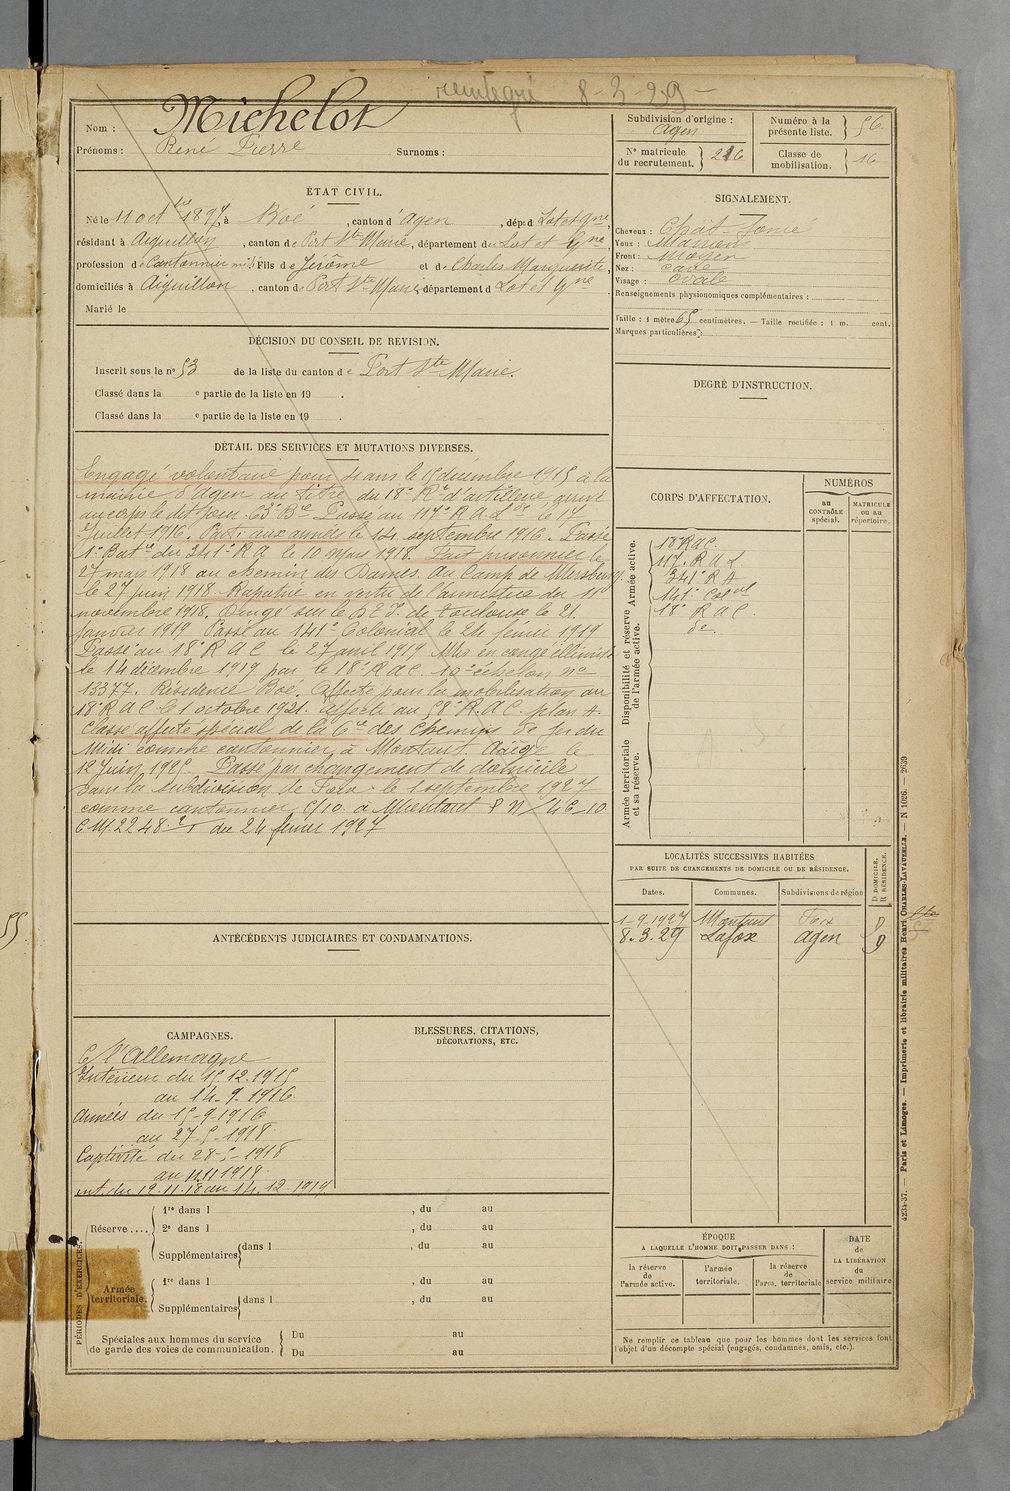 reintegré 8-3-29-
Nom : Michelot
Prénoms : René Pierre Surnoms :
Subdivision d'origine : Agen
Numéro à la présente liste. } 56
N° matricule du recrutement. } 216
Classe de mobilisation. } 16
ÉTAT CIVIL.
Né le 11 octbre 1897, à Boé, canton d'Agen, dép. d Lot et Gne,
résidant à Aiguillon, canton de Port Ste Marie, département du Lot et Gne,
profession de Cantonnier Fils de Jérôme et de Charles Marguerite,
domiciliés à Aiguillon, canton de Port Ste Marie, département d Lot et Gne.
Marié le
SIGNALEMENT.
Cheveux : Chât-foncé
Yeux : Marrons
Front : Moyen
Nez : cave
Visage : ovale
Renseignements physionomiques complémentaires :
Taille : 1 mètre 65 centimètres. — Taille rectifiée : 1 m. cent.
Marques particulières :
DÉCISION DU CONSEIL DE REVISION.
Inscrit sous le n° 53 de la liste du canton de Port Ste Marie.
Classé dans la e partie de la liste en 19 .
Classé dans la e partie de la liste en 19 .
DEGRÉ D'INSTRUCTION.
DÉTAIL DES SERVICES ET MUTATIONS DIVERSES.
Engagé volontaire pour 4 ans le 15 décembre 1915 à la
mairie d'Agen au titre du 18e Rt d'artillerie, arrivé
au corps le dit jour. 63e Bie Passé au 117e R.A.L. le 17
Juillet 1916. Parti aux armées le 14 septembre 1916. Passé
1e Batie du 341e R A le 10 mars 1918. Fait prisonnier le
27 mars 1918 au chemin des Dames. Au Camp de Mersburg
le 27 juin 1918. Rapatrié en vertu de l'armistice du 11
novembre 1918. Dirigé sur le D E I de Toulouse le 21
Janvier 1919 Passé au 141e Colonial le 24 février 1919
Passé au 18e R A C le 27 avril 1919 Mis en congé illimité
le 14 décembre 1919 par le 18e R A C. 10e échelon no
13377. Résidence Boé. Affecté pour la mobilisation au
18e R A C le 1 octobre 1921. affecté au 58e R.A.C. plan A.
Classé affecté spécial de la Cie des chemins de fer du
Midi comme cantonnier à Montaut. Ariège le
12 Juin 1925. Passé par changement de domicile
dans la subdivision de Foix le 1 septembre 1927
comme cantonnier C/10 à Montaut P N/4C-10
E.M. 2248 2/1 du 24 février 1927
CORPS D'AFFECTATION.
NUMÉROS
au CONTRÔLE spécial.
MATRICULE ou au répertoire.
Armée active.
18e RAC.
117e R A L.
341e R A
141e Colal
Disponibilité et réserve de l'armée active.
18e R A C.
de
Armée territoriale et sa réserve.
LOCALITÉS SUCCESSIVES HABITÉES
PAR SUITE DE CHANGEMENTS DE DOMICILE OU DE RÉSIDENCE.
Dates. Communes. Subdivisions de région D DOMICILE, R RÉSIDENCE.
1-9-1927 Montaut Foix D
8.3.29 Lafox Agen D
ANTÉCÉDENTS JUDICIAIRES ET CONDAMNATIONS.
CAMPAGNES.
C/ l'Allemagne
Intérieur du 15.12.1915
au 14-9-1916
Armées du 15-9-1916
au 27-5-1918
Captivité du 28-5-1918
au 11.11.1918.
int. du 12.11.18 au 14.12.1919
BLESSURES, CITATIONS,
DÉCORATIONS, ETC.
PÉRIODES D'EXERCICES.
Réserve.... 1re dans l , du au
2e dans l , du au
Supplémentaires dans l , du au
Armée territoriale. 1re dans l , du au
Supplémentaires dans l , du au
Spéciales aux hommes du service Du au
de garde des voies de communication. Du au
ÉPOQUE
A LAQUELLE L'HOMME DOIT PASSER DANS :
la réserve de l'armée active.
l'armée territoriale.
la réserve de l'arm. territoriale
DATE de LA LIBÉRATION du service militaire
Ne remplir ce tableau que pour les hommes dont les services font
l'objet d'un décompte spécial (engagés, condamnés, omis, etc.).
4234-37. — Paris et Limoges. — Imprimerie et librairie militaires Henri CHARLES-LAVAUZELLE. — N 1026. — 2639
55